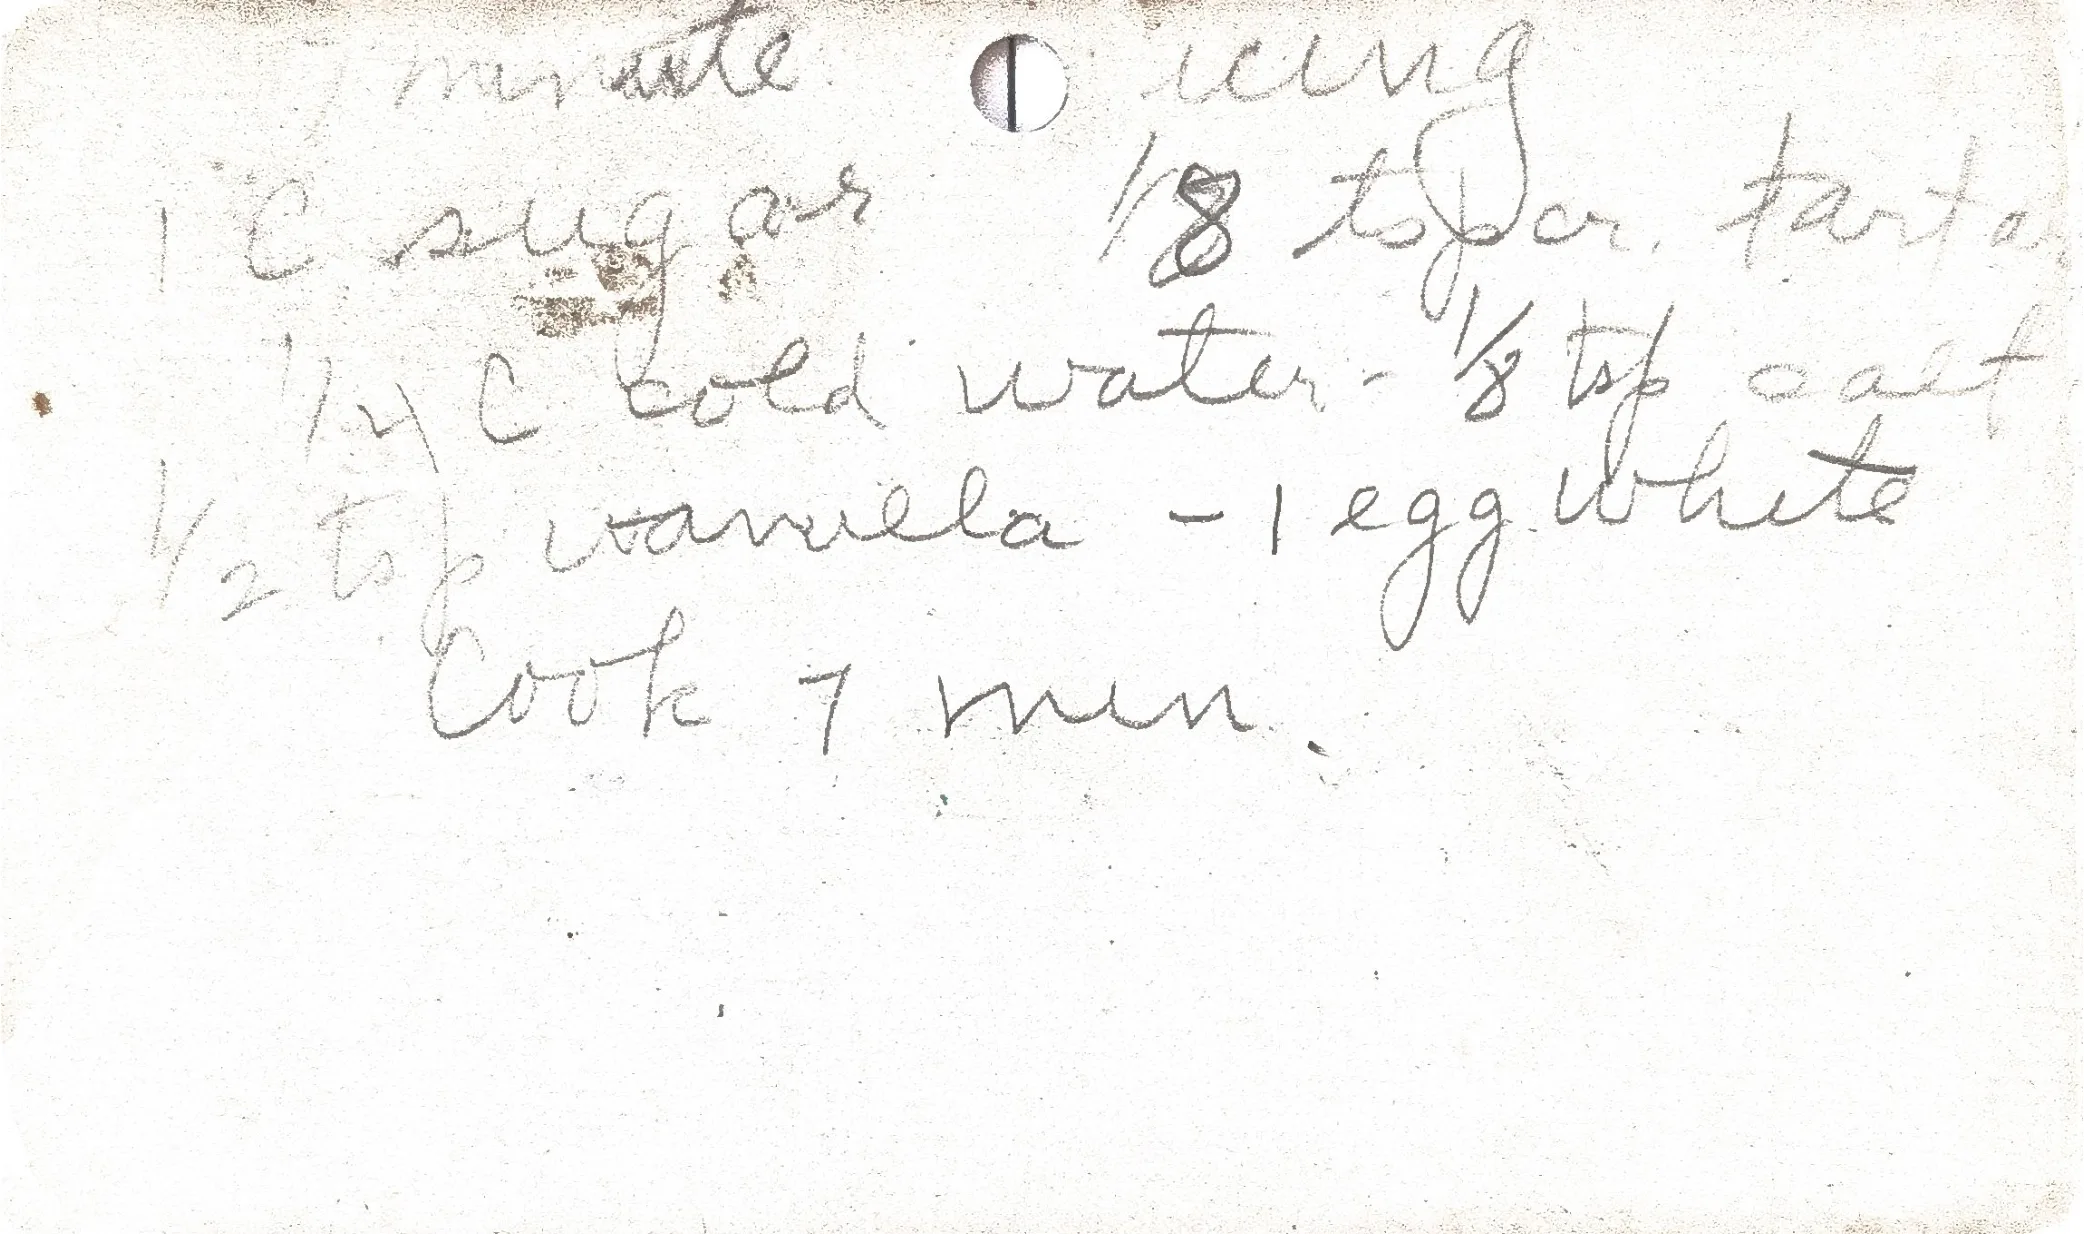 7 minute icing
1 C sugar 1/8 tsp cr. tartar
1/4 C cold water - 1/8 tsp salt
1/2 tsp vanilla - 1 egg white
Cook 7 min.